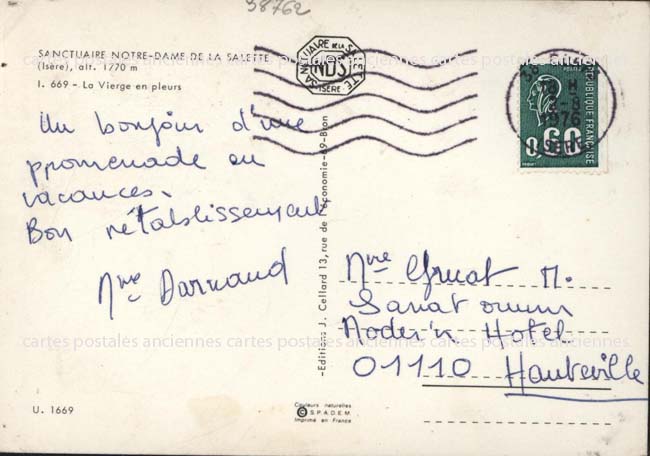 38762
SANCTUAIRE NOTRE-DAME DE LA SALETTE
(Isère), alt. 1770 m
I. 669 - La Vierge en pleurs
Un bonjour d'une
promenade en
vacances.
Bon rétablissement
Mme Darnaud
SANCTUAIRE DE LA SALETTE
NDS
ISÈRE
18 H
2-8
1976
ISERE
0,60
POSTES
REPUBLIQUE FRANÇAISE
-Editions J. Cellard 13, rue de l'économie-69-Bron
Mme Gruat M.
Sanatorium
Moder'n Hotel
01110 Hauteville
cartes postales anciennes cartes postales anciennes cartes postales anciennes
U. 1669
Couleurs naturelles
© S.P.A.D.E.M.
Imprimé en France